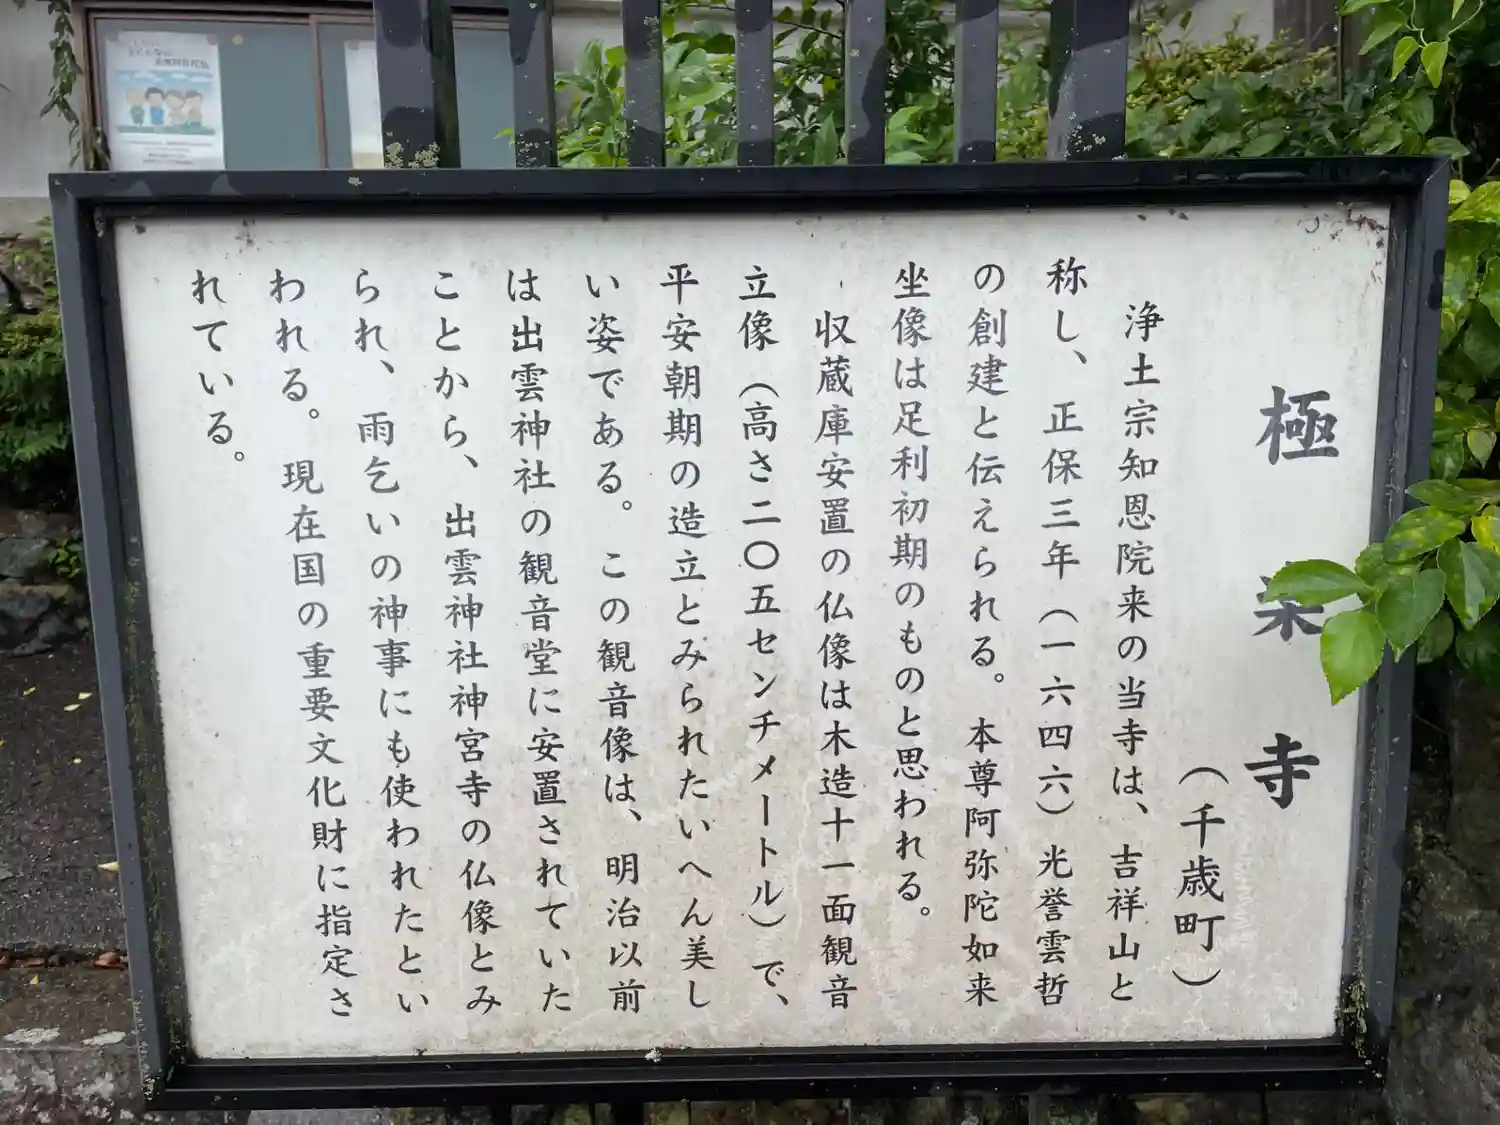 極楽寺
（千歳町）
浄土宗知恩院末の当寺は、吉祥山と
称し、正保三年（一六四六）光誉雲哲
の創建と伝えられる。本尊阿弥陀如来
坐像は足利初期のものと思われる。
収蔵庫安置の仏像は木造十一面観音
立像（高さ二〇五センチメートル）で、
平安朝期の造立とみられたいへん美し
い姿である。この観音像は、明治以前
は出雲神社の観音堂に安置されていた
ことから、出雲神社神宮寺の仏像とみ
られ、雨乞いの神事にも使われたとい
われる。現在国の重要文化財に指定さ
れている。